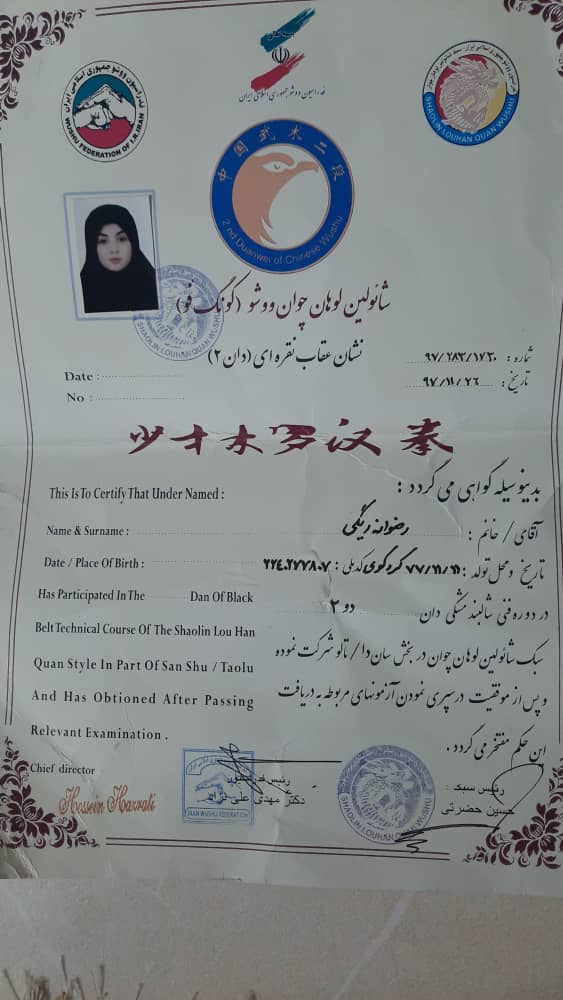 فدراسیون ووشو جمهوری اسلامی ایران
WUSHU FEDERATION OF I.R.IRAN
فدراسیون ووشو جمهوری اسلامی ایران
SHAOLIN LOUHAN QUAN WUSHU
中国武术二段
2nd Duanwei of Chinese Wushu
شائولین لوهان چوان ووشو (کونگ فو)
نشان عقاب نقره ای (دان ۲)
شماره : ۹۷/۲۸۳/۱۷۳۰
تاریخ : ۹۷/۱۱/۲۶
Date :
No :
少林罗汉拳
This Is To Certify That Under Named :
بدینوسیله گواهی می گردد :
Name & Surname :
آقای / خانم : رضوانه ریگی
Date / Place Of Birth :
تاریخ و محل تولد : ۷۷/۱۱/۱۱ کردکوی کد ملی : ۲۲۴۰۲۷۷۸۰۷
Has Participated In The Dan Of Black
در دوره فنی شالبند مشکی دان دو ۲
Belt Technical Course Of The Shaolin Lou Han
سبک شائولین لوهان چوان در بخش سان دا / تالو شرکت نموده
Quan Style In Part Of San Shu / Taolu
و پس از موفقیت در سپری نمودن آزمونهای مربوطه به دریافت
And Has Obtioned After Passing
این حکم مفتخر می گردد .
Relevant Examination .
Chief director
Hossein Hazrati
رئیس فدراسیون
دکتر مهدی علی نژاد
IRAN WUSHU FEDERATION
رئیس سبک :
حسین حضرتی
SHAOLIN LOUHAN QUAN WUSHU